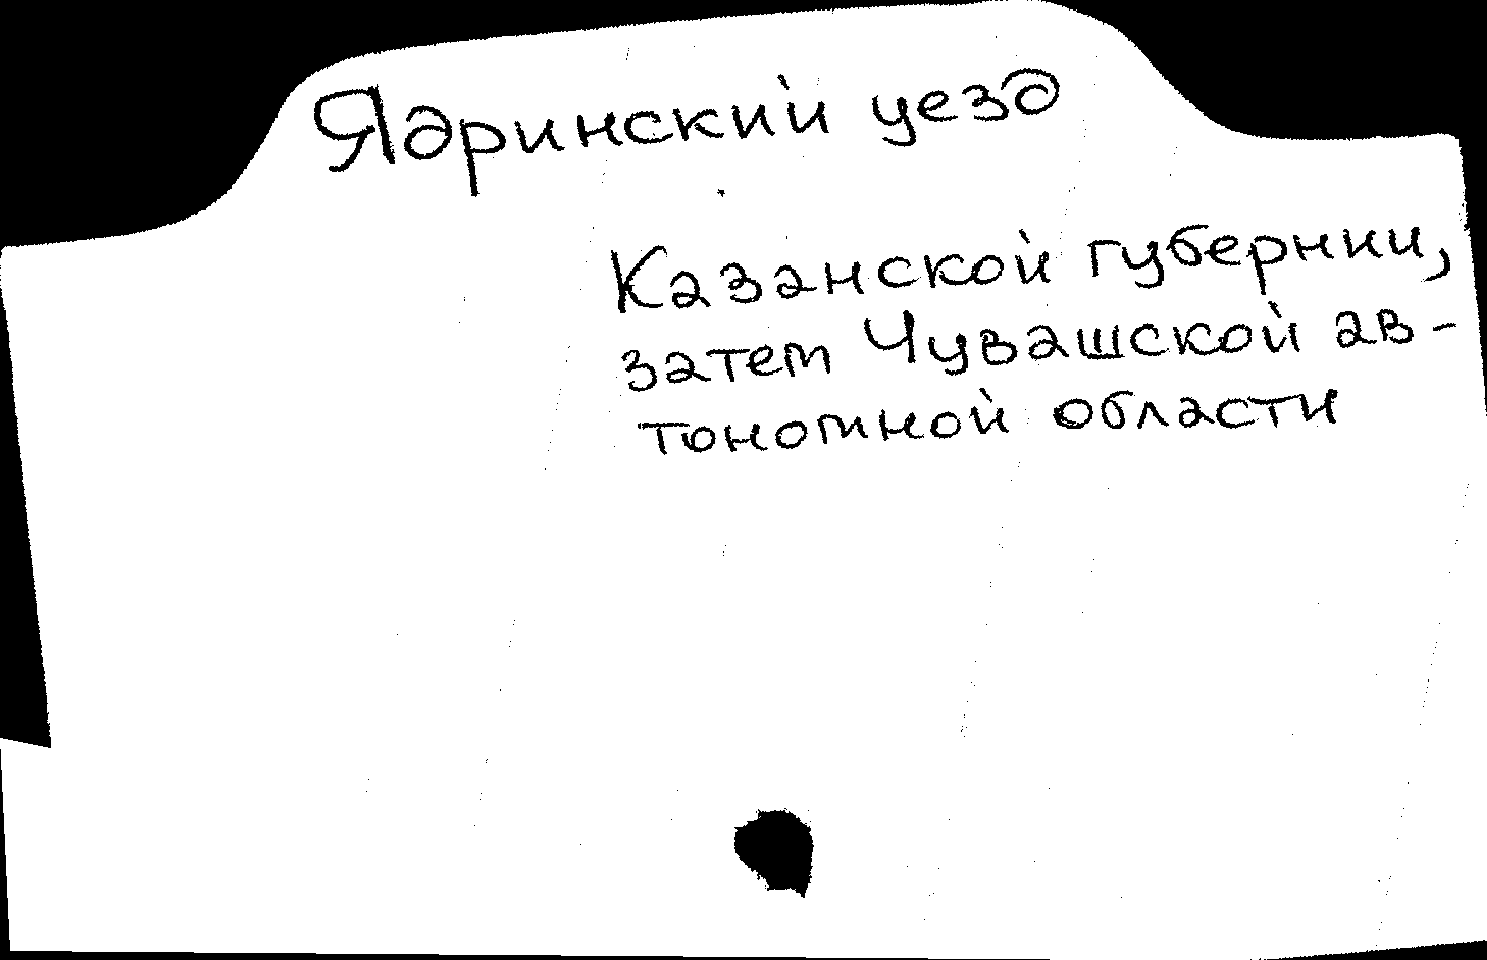 Ядринский уезд
Казанской губернии,
затем Чувашской ав-
тономной области